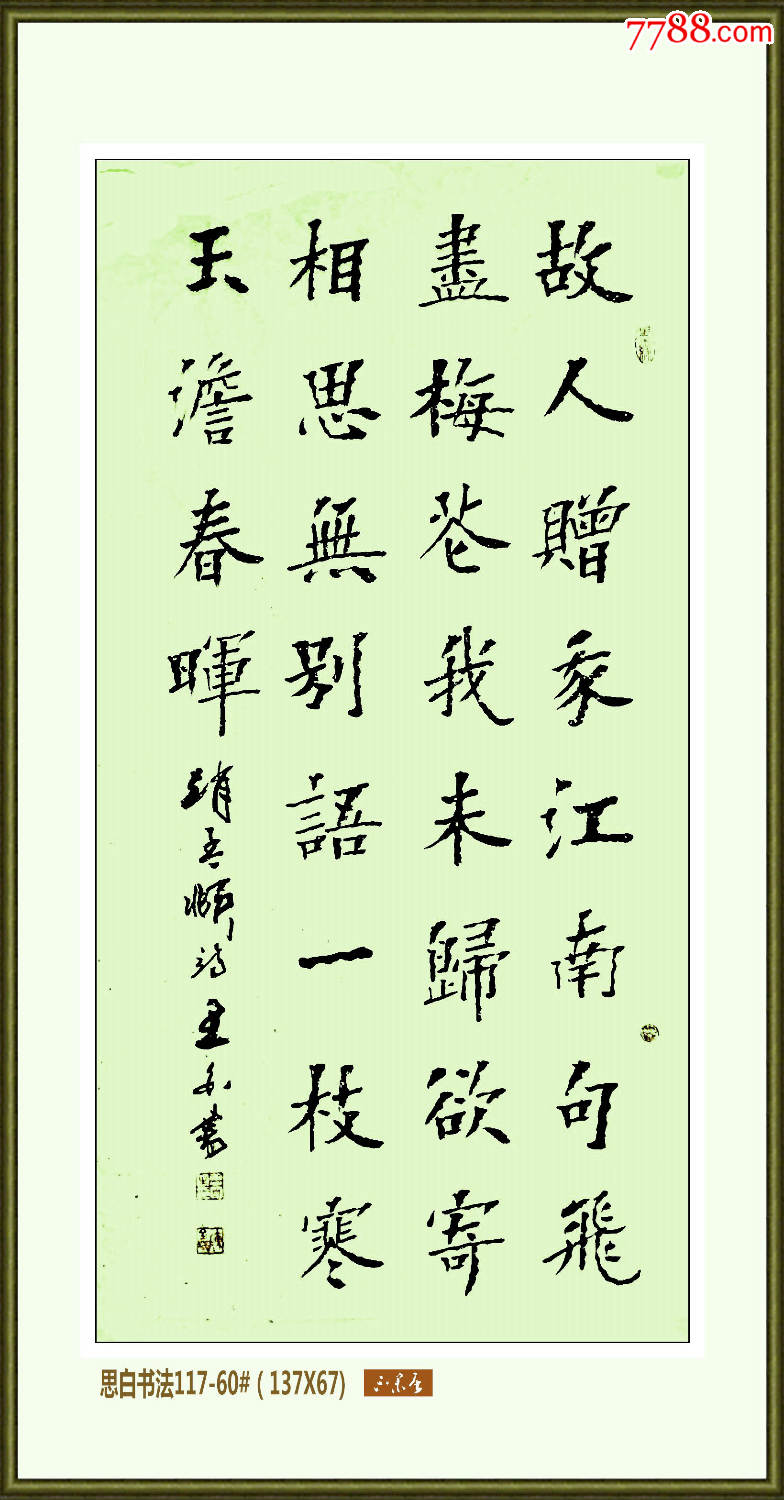 7788.com
故人贈我江南句飛
盡梅花我未歸欲寄
相思無別語一枝寒
玉澹春暉 趙孟頫詩 書
思白书法117-60# ( 137X67)